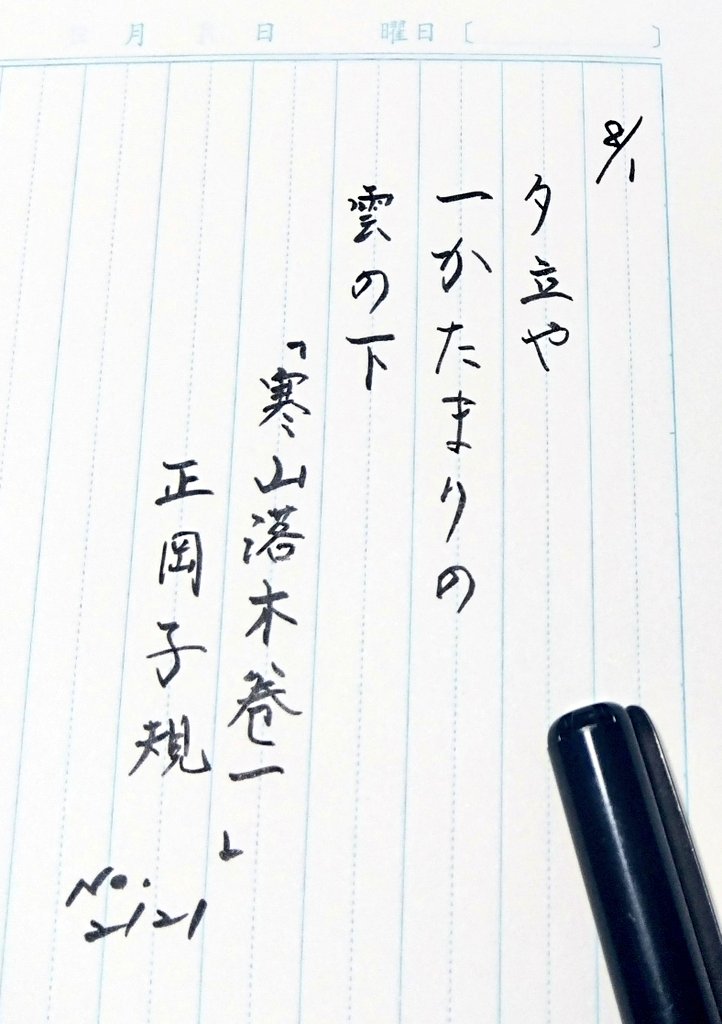 月 日 曜日〔 〕
8/1
夕立や
一かたまりの
雲の下
「寒山落木巻一」
正岡子規
No.
2121